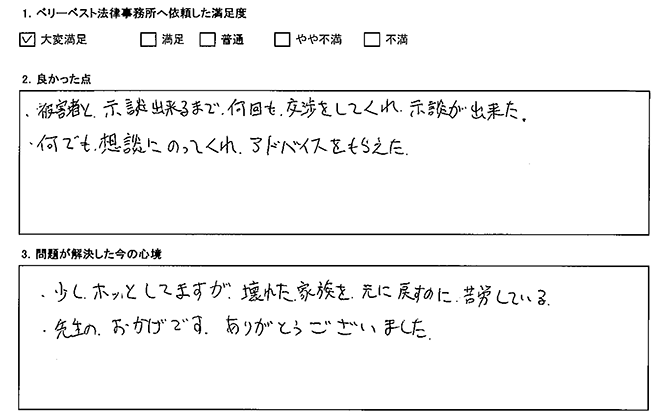 1. ベリーベスト法律事務所へ依頼した満足度
☑ 大変満足 □ 満足 □ 普通 □ やや不満 □ 不満
2. 良かった点
・被害者と、示談出来るまで、何回も、交渉をしてくれ、示談が出来た。
・何でも、想談にのってくれ、アドバイスをもらえた。
3. 問題が解決した今の心境
・少し、ホッとしてますが、壊れた、家族を、元に戻すのに、苦労している。
・先生の、おかげです。ありがとうございました。